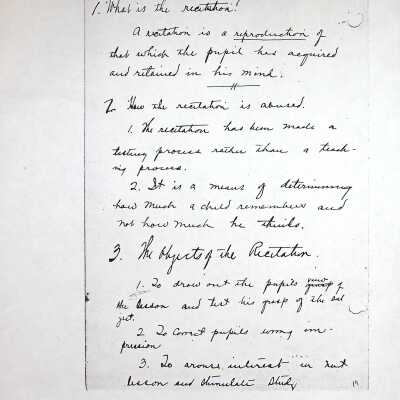 1. What is the recitation?
A recitation is a reproduction of
that which the pupil has acquired
and retained in his mind.
2. How the recitation is abused.
1. The recitation has been made a
testing process rather than a teach-
ing process.
2. It is a means of determining
how much a child remembers and
not how much he thinks.
3. The Objects of the Recitation.
1. To draw out the pupils view of
the lesson and test his grasp of the sub
ject.
2. To Correct pupils wrong im-
pression
3. To arouse interest in next
lesson and stimulate study